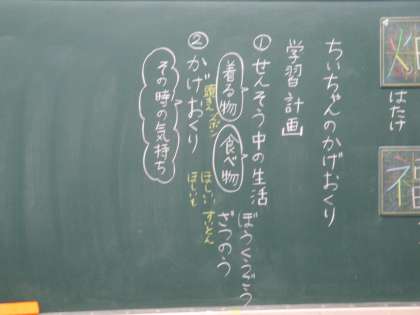 畑
はたけ
福
ちいちゃんのかげおくり
学習計画
①せんそう中の生活
ぼうくうごう
着る物
食べ物
ざつのう
ほしいも
②かげおくり
その時の気持ち